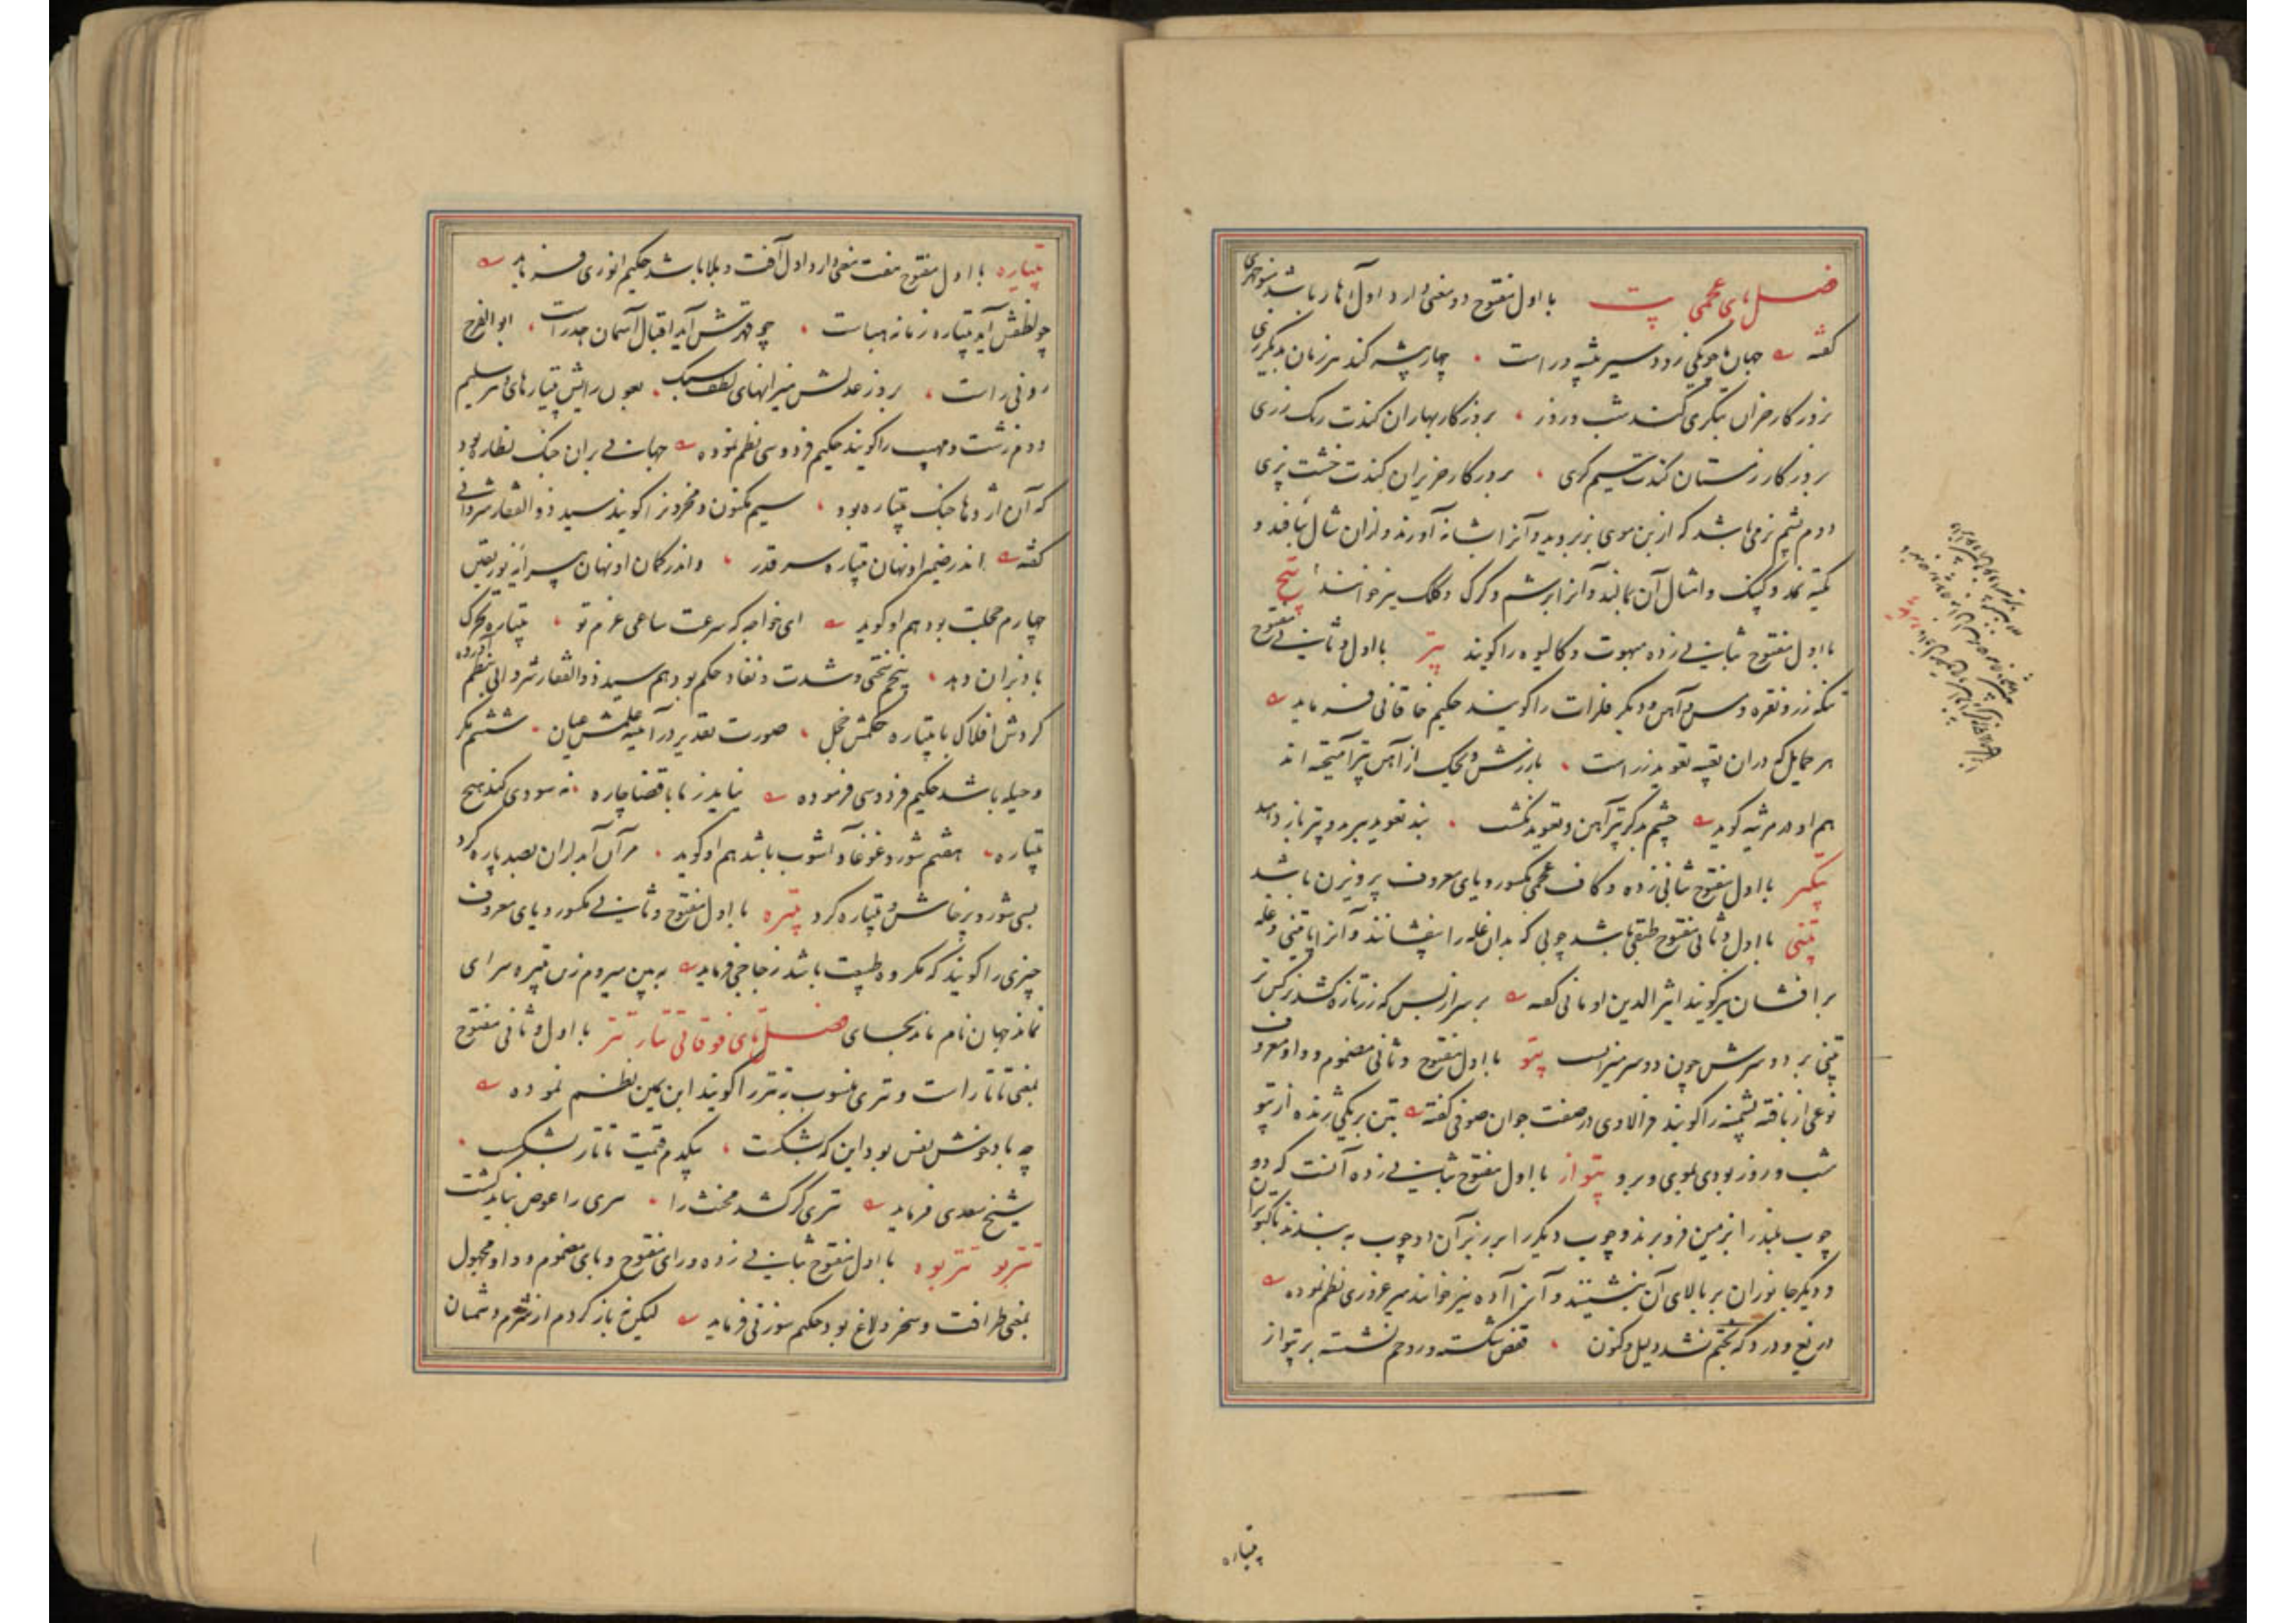 فصل بای عجمی پت با اول مفتوح دو معنی دارد اول آهار باشد منوچهری
گفته جهان ما چو یکی زود سیر پیشه ور است چهار پیشه کند هر زمان به دیگر زی
بروزگار خزان زرگری کند شب و روز بروزگار بهاران کندت رنگ رزی
بروزگار زمستان کندت سیم گری بروزگار حزیران کندت خشت پزی
دوم پشم نرمی باشد که از بن موی بز بروید و آنرا بشانه برآورند و ازان شال بافند و
تکیه نمد و کپنک و امثال آن بمالند و آنرا بزشم و کرک و کلک نیز خوانند پتخ
با اول مفتوح بثانی زده مبهوت و کالیوه را گویند پتر با اول و ثانی مفتوح
تنکه زر و نقره و مس و آهن و دیگر فلزات را گویند حکیم خاقانی فرماید
هر حمایل که دران تعبیه تعویذ زر است بازرش ویحک از آهن پتر آمیخته اند
هم او در مرثیه گوید چشم بد کز پتر آهن و تعویذ نگشت بند تعویذ ببرید و پتر باز دهید
پتکیر با اول مفتوح بثانی زده و کاف عجمی مکسور و یای معروف پرویزن باشد
پتنی با اول و ثانی مفتوح طبقی باشد چوبی که بدان غله را بیفشانند و آنرا پاتنی و غله
برافشان نیز گویند اثیر الدین اومانی گفته بر سر از بس که زر تازه کشد نرگس تر
پتنی بر دو سرش چون دو سر میزانست پتو با اول مفتوح و ثانی مضموم و واو معروف
نوعی از بافته پشمینه را گویند فرالاوی در صفت جوان صوفی گفته بتن بر یکی ژنده از پتو
شب و روز بودی بموی و برو پتواز با اول مفتوح بثانی زده آنست که دو
چوب بلند را بزمین فرو برند و چوب دیگر را بر زبر آن دو چوب به بندند تا کبوتران
و دیگر جانوران بر بالای آن بنشینند و آنرا آده نیز خوانند میر عزوری نظم نموده
دریغ و درد که بختم نشد دلیل و کنون قفص شکسته و روحم نشسته بر پتواز
پتیاره
پتیاره با اول مفتوح هفت معنی دارد اول آفت و بلا باشد حکیم انوری فرماید
چو لطفش آید پتیاره زمانه هباست چو قهرش آید اقبال آسمان هدر است ابو الفرج
رونی راست بروز عدلش میزانهای لطف سبک بعون رایش پتیارهای دهر سلیم
دوم زشت و مهیب را گویند حکیم فردوسی نظم نموده جهانی بران جنگ نظاره بود
که آن اژدها جنگ پتیاره بود سیم مکنون و مخزون را گویند سید ذو الفقار شروانی
گفته اندر ضمیر او نهان پتیاره سر قدر و اندر کمان او نهان پیرایه نور یقین
چهارم خجلت بود هم او گوید ای خواجه که سرعت ساعی عزم تو پتیاره تحرک
باد بزان دهد پنجم سختی و شدت و نفاد حکم بود هم سید ذو الفقار شروانی بنظم آورده
گردش افلاک با پتیاره حکمش خجل صورت تقدیر در آئینه علمش عیان ششم مکر
و حیله باشد حکیم فردوسی فرموده نیاید ز ما با قضا چاره نه سودی کند هیچ
پتیاره هفتم شور و غوغا و آشوب باشد هم او گوید مر آن آبداران بصد پاره کرد
بسی شور و پرخاش و پتیاره کرد پتیره با اول مفتوح و ثانی مکسور و یای معروف
چیزی را گویند که مکروه طبیعت باشد زجاجی فرماید به بین میروم زین پتیره سرای
نماند جهان نام ماند بجای فصل تای فوقانی تتار تتر با اول و ثانی مفتوح
بمعنی تاتار است و تتری منسوب به تتر را گویند ابن یمین نظم نموده
چه باد خوش نفس بود این که بشکست بیکدم قیمت تاتار بشکست
شیخ سعدی فرماید تتری گر کشد مخنث را تتری را عوض نباید کشت
تتربو تتربوه با اول مفتوح بثانی زده و رای مفتوح و بای مضموم و واو مجهول
بمعنی ظرافت و سخر و لاغ بود حکیم سوزنی فرماید لیکن باز کردم از شرم دشمنان